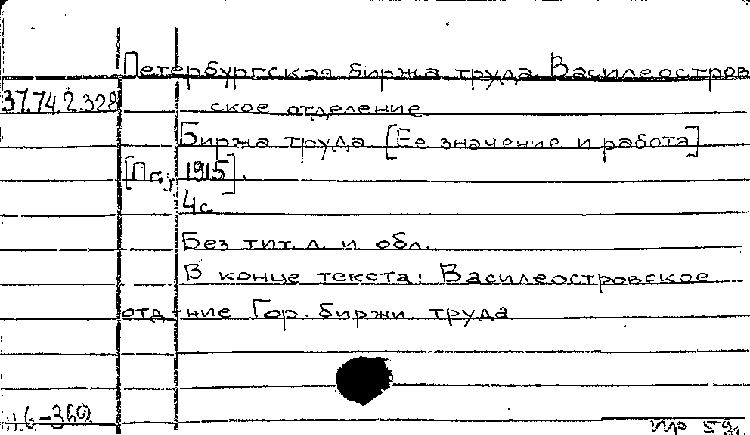 Петербургская биржа труда Василеостров
37.74.2.328 ское отделение
Биржа труда [Ее значение и работа]
[Пг., 1915].
4с
Без тит. л. и обл.
В конце текста: Василеостровское
отд-ние Гор. биржи труда
-360
пр 59г.